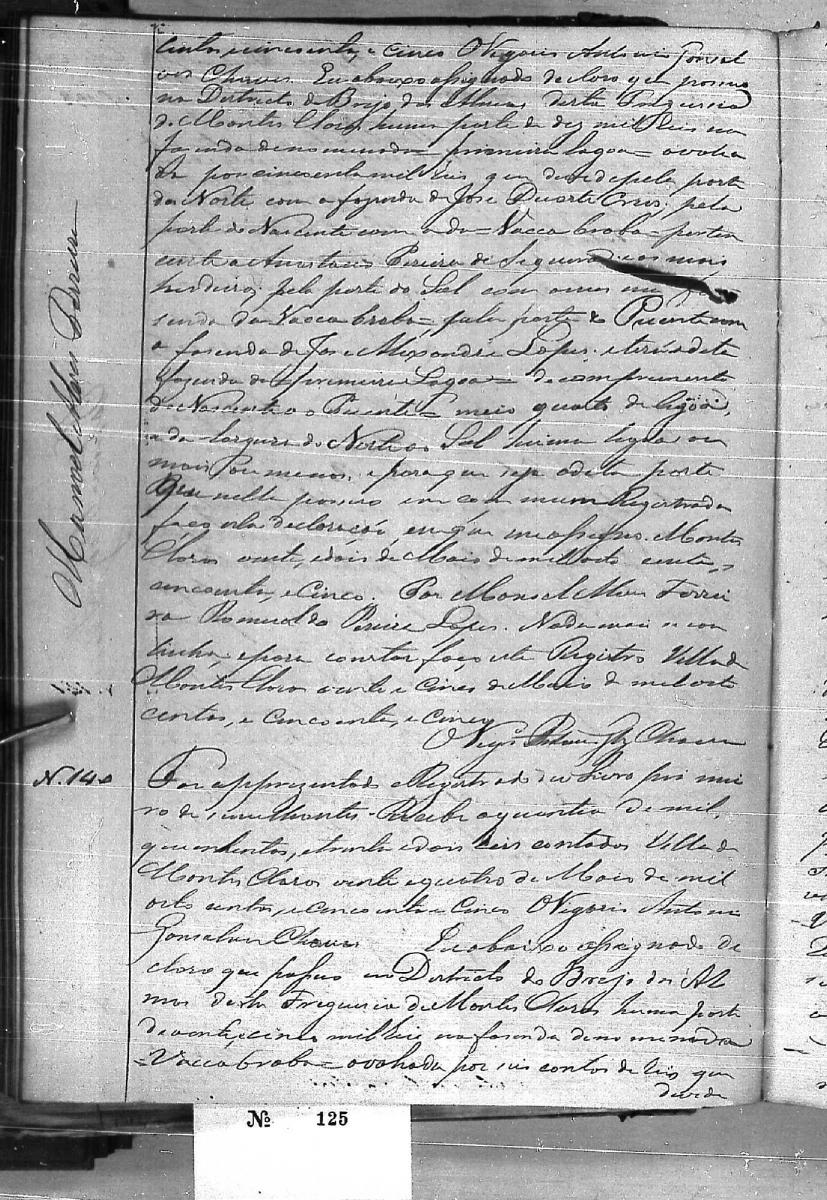 centos e cincoenta, e cinco O Vigario Antonio Gonsal
ves Chaves. Eu abaixo assignado declaro que possuo
no Districto do Brejo das Almas desta Freguesia
de Montes Claros huma parte de dez mil reis na
fazenda denominada = primeira lagoa = avalia
da por cincoenta mil reis que devide pela parte
do Norte com a fazenda de Jose Duarte Cruz, pela
parte do Nascente com a da = Vacca braba = perten
cente a Anastacio Pereira de Siqueira e os mais
herdeiros, pela parte do Sul com a mesma fa
senda da Vacca braba = pela parte do Puente com
a fasenda de Jose Alexandre Lopes. e terá a dita
fazenda da primeira Lagoa = de comprimento
do Nascente ao Puente = meio quarto de legoa,
e da largura do Norte ao Sul huma legoa ou
mais ou menos. e para que seja a dita parte
que nella possuo em commum Registrada
faço esta declaração, em que me assigno. Montes
Claros vinte, e dois de Maio de mil oito centos,
cincoenta, e cinco. Por Manoel Maria Ferrei
ra Romualdo Pereira Lopes. Nada mais se con
tinha, e para constar faço este Registro Villa de
Montes Claros vinte e cinco de Maio de mil oito
centos, e cincoenta, e cinco
O Vigr.º Antonio Glz Chaves
Manoel Maria Ferreira
N. 140
Foi appresentado e Registrado no Livro primei
ro de semelhantes. Recebi a quantia de mil,
quinhentos, e trinta e dois reis contados Villa de
Montes Claros vinte e quatro de Maio de mil
oito centos, e cincoenta e cinco O Vigario Antonio
Gonsalves Chaves Eu abaixo assignado de
claro que possuo no Districto do Brejo das Al
mas desta Freguesia de Montes Claros huma parte
de vinte, e cinco mil reis na fasenda denominada
= Vacca braba = avaliada por seis contos de reis que
devide
Nº 125